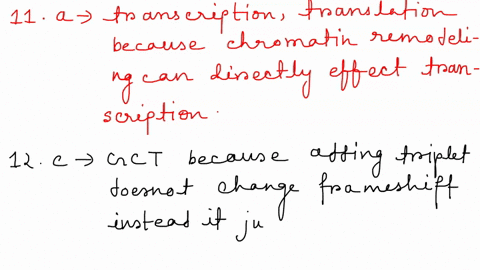 11. a → transcription, translation
because chromatin remodeli-
ng can directly effect tran-
scription.
12. c → GCT because adding triplet
doesnot change frameshiff
instead it ju